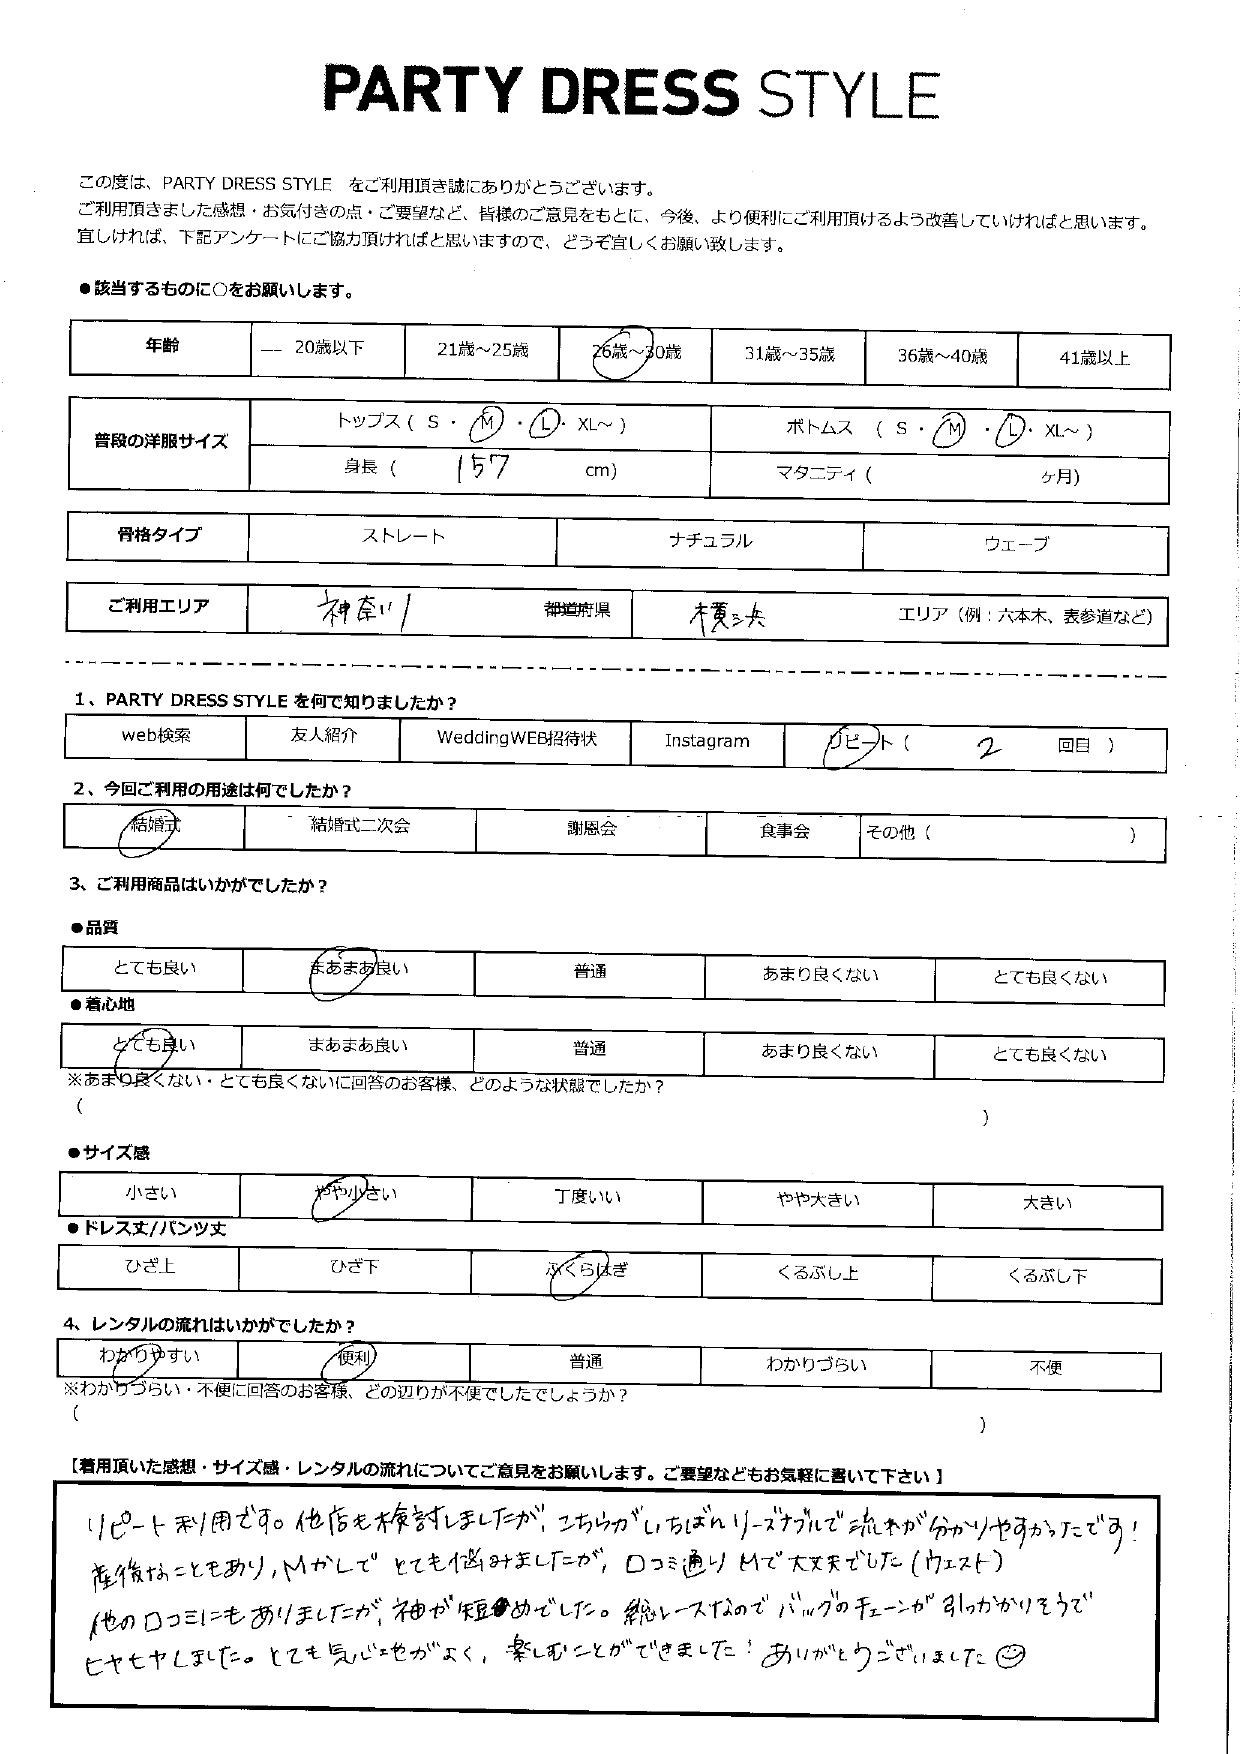 PARTY DRESS STYLE
この度は、PARTY DRESS STYLE をご利用頂き誠にありがとうございます。
ご利用頂きました感想・お気付きの点・ご要望など、皆様のご意見をもとに、今後、より便利にご利用頂けるよう改善していければと思います。
宜しければ、下記アンケートにご協力頂ければと思いますので、どうぞ宜しくお願い致します。
●該当するものに○をお願いします。
年齢 20歳以下 21歳～25歳 26歳～30歳 31歳～35歳 36歳～40歳 41歳以上
普段の洋服サイズ トップス ( S ・ M ・ L ・ XL～ ) ボトムス ( S ・ M ・ L ・ XL～ )
身長 ( 157 cm) マタニティ ( ヶ月)
骨格タイプ ストレート ナチュラル ウェーブ
ご利用エリア 神奈川 都道府県 横浜 エリア（例：六本木、表参道など）
1、PARTY DRESS STYLE を何で知りましたか？
web検索 友人紹介 WeddingWEB招待状 Instagram リピート ( 2 回目 )
2、今回ご利用の用途は何でしたか？
結婚式 結婚式二次会 謝恩会 食事会 その他 ( )
3、ご利用商品はいかがでしたか？
●品質
とても良い まあまあ良い 普通 あまり良くない とても良くない
●着心地
とても良い まあまあ良い 普通 あまり良くない とても良くない
※あまり良くない・とても良くないに回答のお客様、どのような状態でしたか？
( )
●サイズ感
小さい やや小さい 丁度いい やや大きい 大きい
●ドレス丈/パンツ丈
ひざ上 ひざ下 ふくらはぎ くるぶし上 くるぶし下
4、レンタルの流れはいかがでしたか？
わかりやすい 便利 普通 わかりづらい 不便
※わかりづらい・不便に回答のお客様、どの辺りが不便でしたでしょうか？
( )
【着用頂いた感想・サイズ感・レンタルの流れについてご意見をお願いします。ご要望などもお気軽に書いて下さい】
リピート利用です。他店も検討しましたが、こちらがいちばんリーズナブルで流れが分かりやすかったです！
産後なこともあり、MかLで とても悩みましたが、口コミ通り Mで大丈夫でした（ウエスト）
他の口コミにもありましたが、袖が短めでした。総レースなので バッグのチェーンが引っかかりそうで
ヒヤヒヤしました。とても気心地がよく、楽しむことができました！ありがとうございました☺